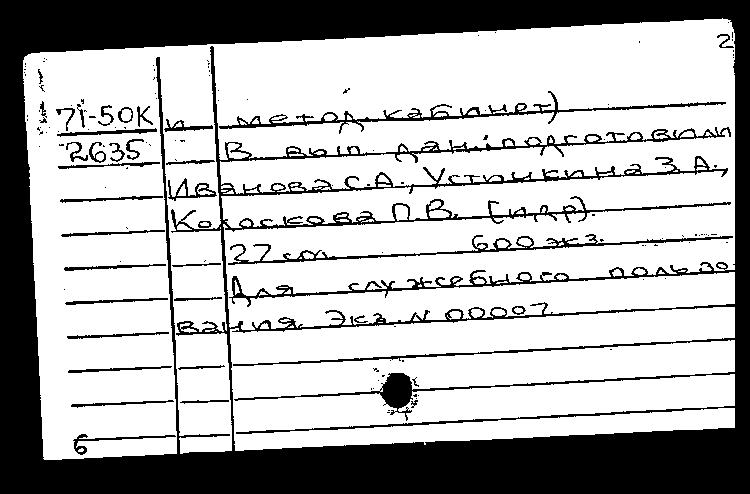 2
71-50К и метод. кабинет)
2635 В вып. дан.: подготовили
Иванова С.А., Устинкина З.А.,
Колоскова П.В. [и др].
27 cm. 600 экз.
Для служебного пользо
вания. Экз. N 00007.
6